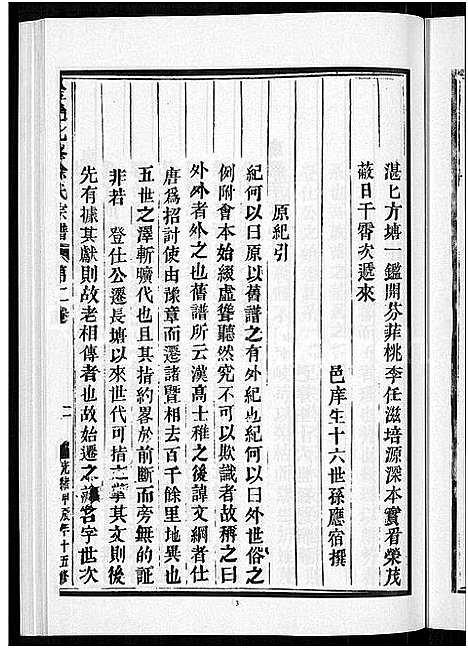 湛匕方塘一鑑開芬菲桃李任滋培源深本實看榮茂
蔽日干霄次遞來
邑庠生十六世孫應宿撰
原紀引
紀何以曰原以舊譜之有外紀也紀何以曰外世俗之
例附會本始綴虛聳聽然究不可以欺識者故稱之曰
外外者外之也舊譜所云漢高士稚之後諱文綱者仕
唐為招討使由豫章而遷諸暨相去百千餘里地異也
五世之澤斬曠代也且其指約畧於前斷而旁無的証
非若 登仕公遷長塘以來世代可指之掌其文則後
先有據其獻則故老相傳者也故始遷之 名字世次
北 徐氏宗譜 第二卷
二
光緒甲辰年十五修
3